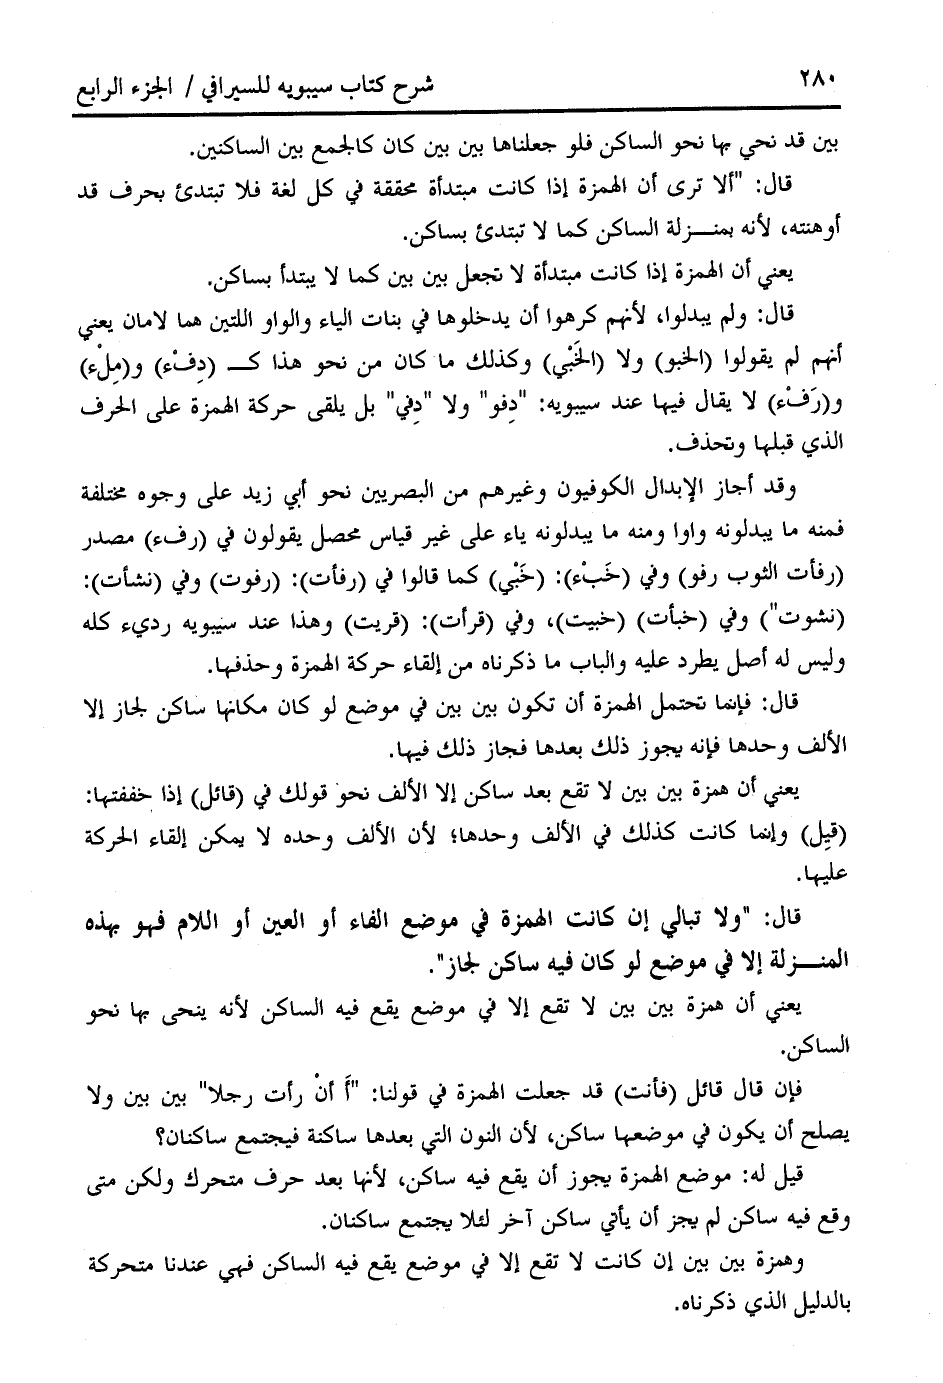 ٢٨٠
شرح كتاب سيبويه للسيرافي / الجزء الرابع
بين قد نحي بها نحو الساكن فلو جعلناها بين بين كان كالجمع بين الساكنين.
قال: "ألا ترى أن الهمزة إذا كانت مبتدأة محققة في كل لغة فلا تبتدئ بحرف قد
أوهنته، لأنه بمنـــزلة الساكن كما لا تبتدئ بساكن.
يعني أن الهمزة إذا كانت مبتدأة لا تجعل بين بين كما لا يبتدأ بساكن.
قال: ولم يبدلوا، لأنهم كرهوا أن يدخلوها في بنات الياء والواو اللتين هما لامان يعني
أنهم لم يقولوا (الخبو) ولا (الخَبْي) وكذلك ما كان من نحو هذا كــ (دِفْء) و(مِلْء)
و(رَفْء) لا يقال فيها عند سيبويه: "دِفو" ولا "دِفي" بل يلقى حركة الهمزة على الحرف
الذي قبلها وتحذف.
وقد أجاز الإبدال الكوفيون وغيرهم من البصريين نحو أبي زيد على وجوه مختلفة
فمنه ما يبدلونه واوا ومنه ما يبدلونه ياء على غير قياس محصل يقولون في (رفء) مصدر
(رفأت الثوب رفو) وفي (خَبْء): (خَبْي) كما قالوا في (رفأت): (رفوت) وفي (نشأت):
(نشوت") وفي (خبأت) (خبيت)، وفي (قرأت): (قريت) وهذا عند سيبويه رديء كله
وليس له أصل يطرد عليه والباب ما ذكرناه من إلقاء حركة الهمزة وحذفها.
قال: فإنما تحتمل الهمزة أن تكون بين بين في موضع لو كان مكانها ساكن لجاز إلا
الألف وحدها فإنه يجوز ذلك بعدها فجاز ذلك فيها.
يعني أن همزة بين بين لا تقع بعد ساكن إلا الألف نحو قولك في (قائل) إذا خففتها:
(قيِل) وإنما كانت كذلك في الألف وحدها؛ لأن الألف وحده لا يمكن إلقاء الحركة
عليها.
قال: "ولا تبالي إن كانت الهمزة في موضع الفاء أو العين أو اللام فهو بهذه
المنـــزلة إلا في موضع لو كان فيه ساكن لجاز".
يعني أن همزة بين بين لا تقع إلا في موضع يقع فيه الساكن لأنه ينحى بها نحو
الساكن.
فإن قال قائل (فأنت) قد جعلت الهمزة في قولنا: "أَ أنْ رأت رجلا" بين بين ولا
يصلح أن يكون في موضعها ساكن، لأن النون التي بعدها ساكنة فيجتمع ساكنان؟
قيل له: موضع الهمزة يجوز أن يقع فيه ساكن، لأنها بعد حرف متحرك ولكن متى
وقع فيه ساكن لم يجز أن يأتي ساكن آخر لئلا يجتمع ساكنان.
وهمزة بين بين إن كانت لا تقع إلا في موضع يقع فيه الساكن فهي عندنا متحركة
بالدليل الذي ذكرناه.